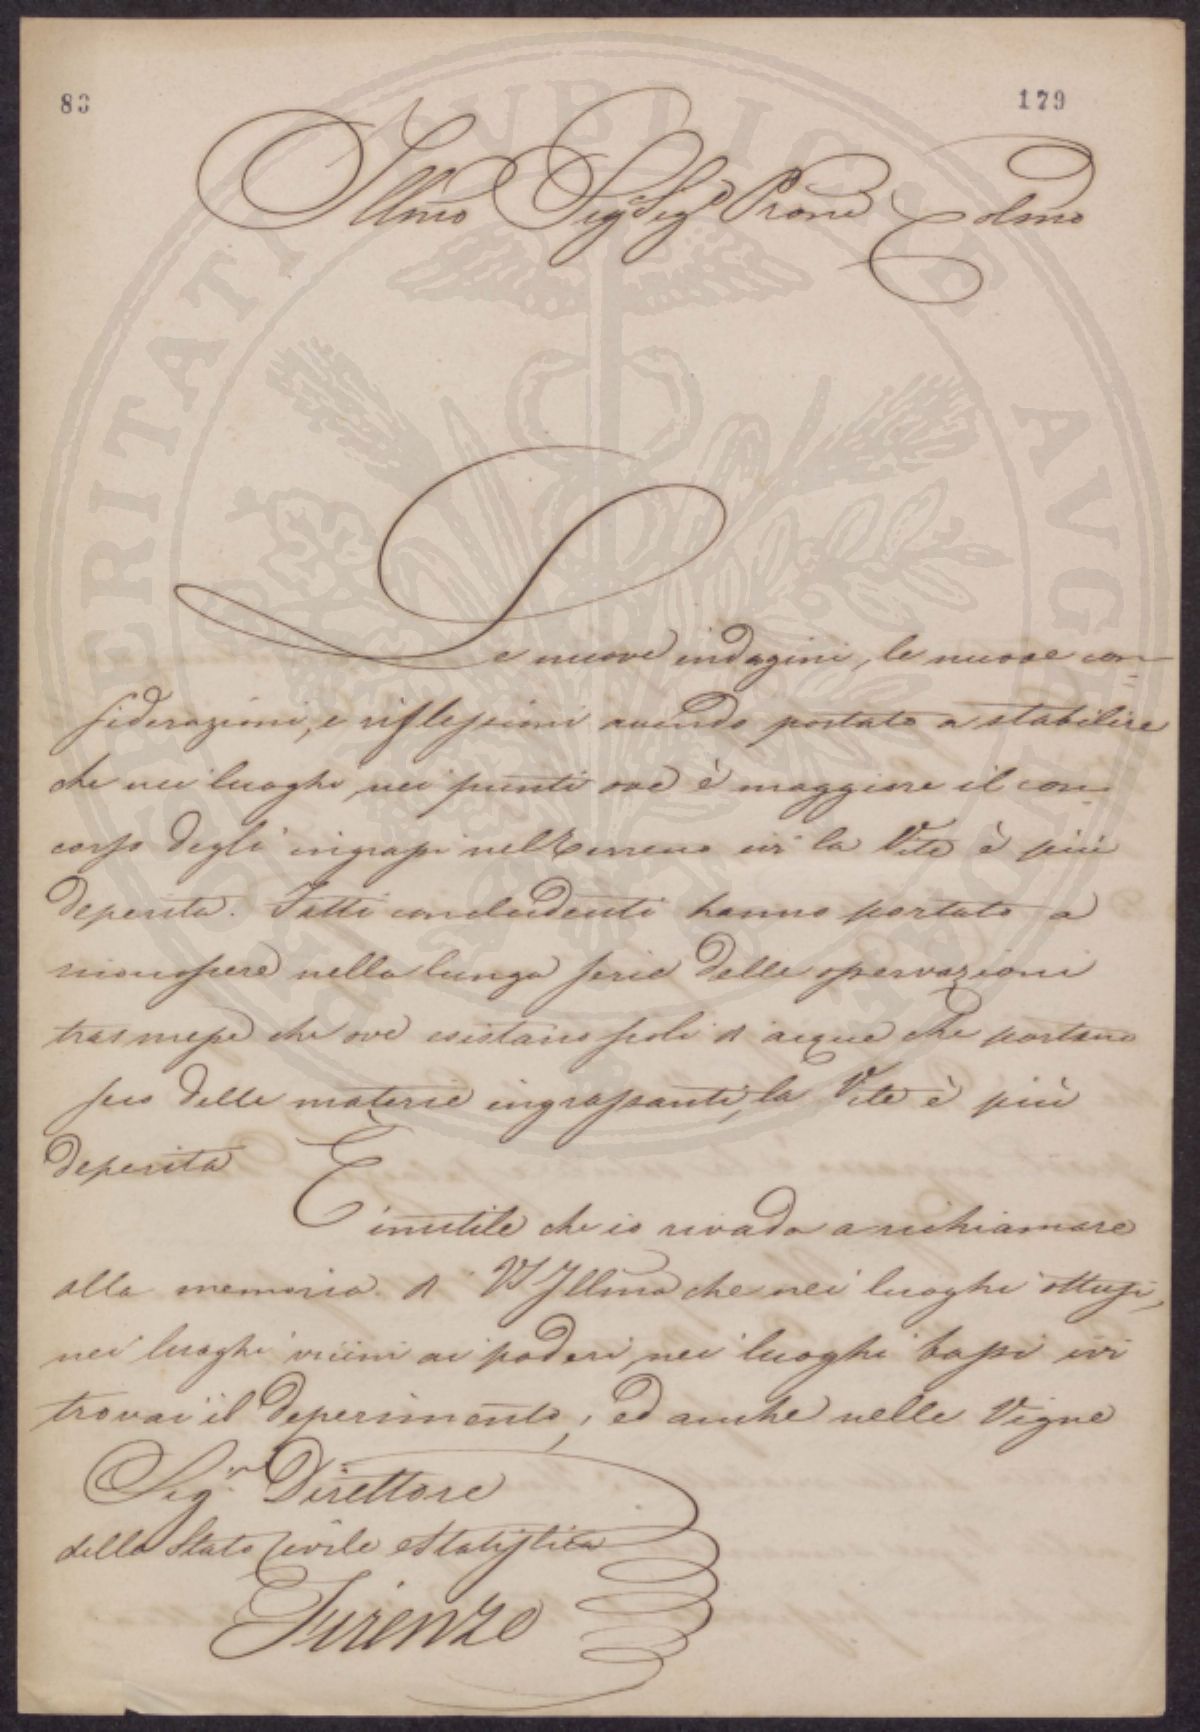 83 179
Illmo Sigr Sigr Prone Colmo
Le nuove indagini, le nuove con=
siderazioni, e riflessioni avendo portato a stabilire
che nei luoghi, nei punti ove è maggiore il con=
corso degli ingrassi nel terreno ivi la Vite è più
deperita. Fatti concludenti hanno portato a
riconoscere nella lunga serie delle osservazioni
trasmesse che ove esistano scoli d'acque che portano
seco delle materie ingrassanti, la Vite è più
deperita
E' inutile che io rivada a richiamare
alla memoria di VS Illma che nei luoghi ottusi,
nei luoghi vicini ai poderi, nei luoghi bassi ivi
trovai il deperimento, ed anche nelle Vigne
Sigr Direttore
dello Stato Civile e Statistica
Firenze
PVBLICAE AVGE PROSPERITATI